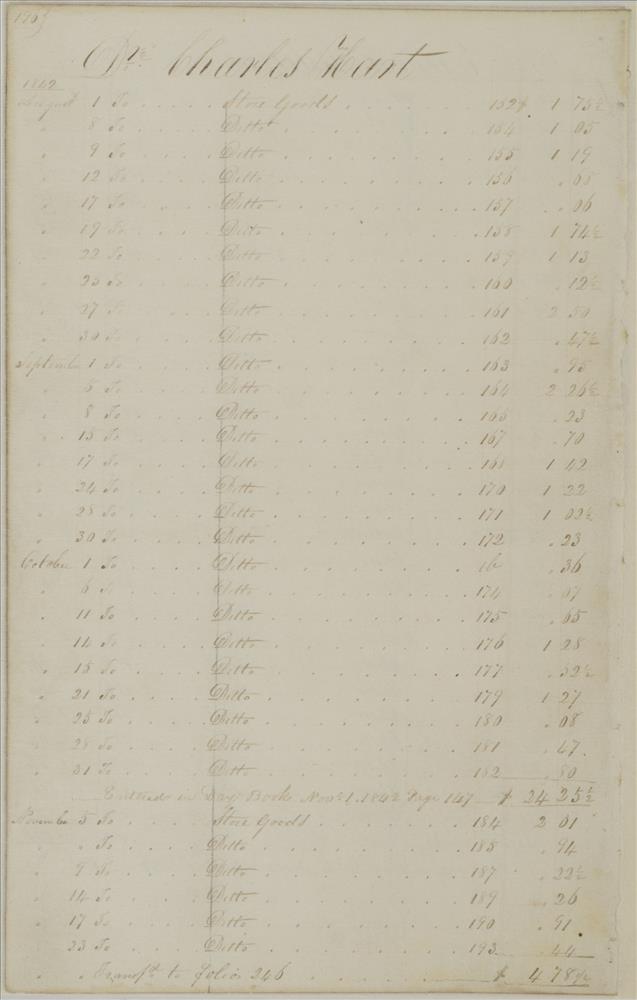 Dr. Charles Hart
1842
August 1 To Store Goods 152 $ 1 75½
" 8 To Ditto 154 1 05
" 9 To Ditto 155 1 19
" 12 To Ditto 156 . 68
" 17 To Ditto 157 . 06
" 19 To Ditto 158 1 74½
" 22 To Ditto 159 1 13
" 25 To Ditto 160 . 12½
" 27 To Ditto 161 2 50
" 30 To Ditto 162 . 47½
September 1 To Ditto 163 . 95
" 6 To Ditto 164 2 26½
" 8 To Ditto 165 . 23
" 15 To Ditto 167 . 70
" 17 To Ditto 168 1 42
" 24 To Ditto 170 1 22
" 28 To Ditto 171 1 02½
" 30 To Ditto 172 . 23
October 1 To Ditto ib . 36
" 6 To Ditto 174 . 67
" 11 To Ditto 175 . 65
" 14 To Ditto 176 1 28
" 15 To Ditto 177 . 32½
" 21 To Ditto 179 1 27
" 25 To Ditto 180 . 08
" 28 To Ditto 181 . 47
" 31 To Ditto 182 . 80
Entered in Day Book Novr 1. 1842 Page 147 $ 24 25½
November 5 To Store Goods 184 2 01
" " To Ditto 185 . 94
" 9 To Ditto 187 . 22½
" 14 To Ditto 189 . 26
" 17 To Ditto 190 . 91
" 23 To Ditto 193 . 44
" " Transfd to Folio 246 $ 4 78½